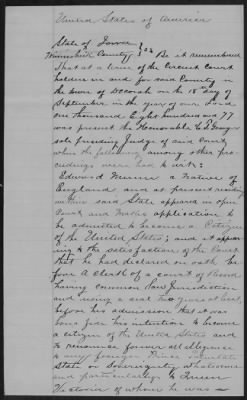 United States of America
State of Iowa
Winneshiek County } SS Be it remembered
That at a term of the Circuit Court
holden in and for said County in
the town of Decorah on the 18th day of
September in the year of our Lord
one thousand Eight hundred and 77
was present the Honorable
sole presiding Judge of said Court
when the following among other pro
ceedings were had to wit:
Edward a Native of
England and at present residing
within said State appeared in open
Court and makes application to
be admitted to become a Citizen
of the United States; and it appear
ing to the satisfaction of the Court
that he had declared on oath be
fore A Clerk of a court of Record
having common law Jurisdiction
and using a seal two years at least
before his admission that it was
bona fide his intention to become
a citizen of the United States and
to renounce forever all allegiance
to any foreign Prince Potentate
State or Sovereignty whatsoever
and particularly to Queen
Victoria of whom he was